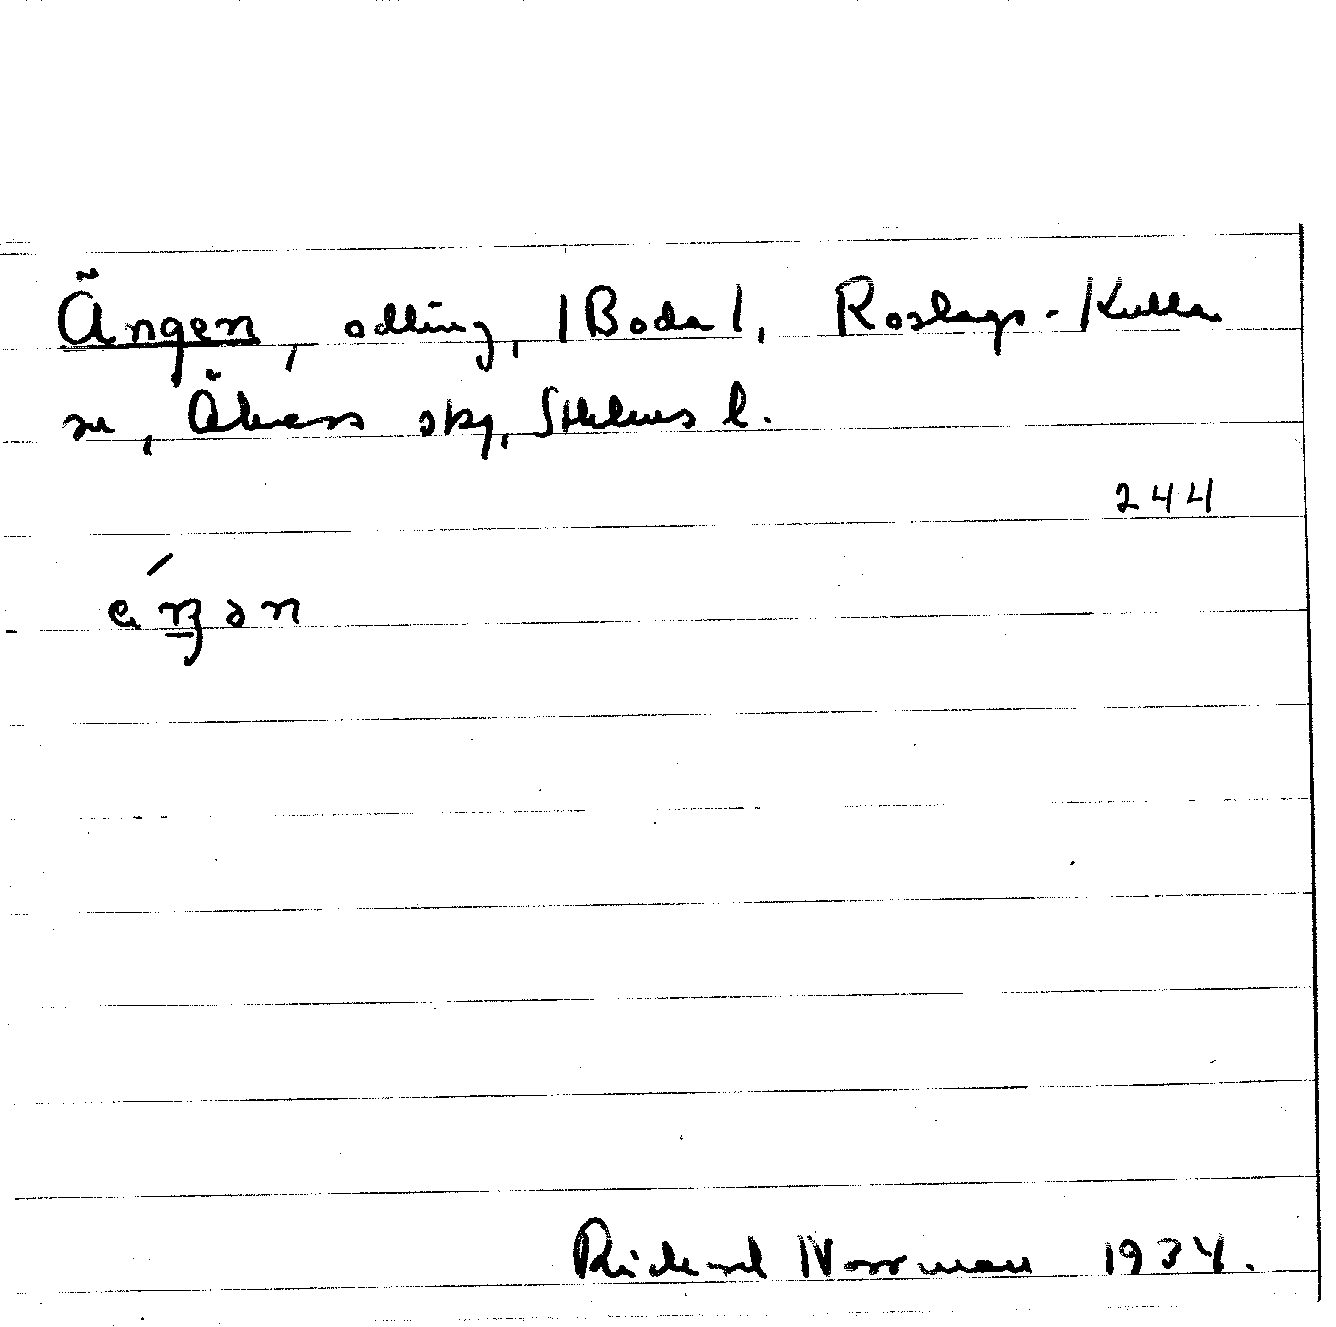 Ängen, odling, |Boda|, Roslags-Kulla
sn, Åkers skg, Sthlms l.
244
Rickard Norrman 1934.